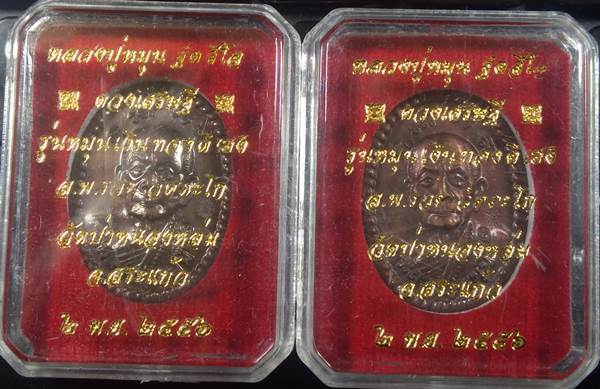 หลวงปู่หมุน ฐิตสีโล
ดวงเศรษฐี
รุ่นหมุนเงินทองดีเฮง
วัดป่าหนองหล่ม
จ.สระแก้ว
๒ พ.ย. ๒๕๕๖
หลวงปู่หมุน ฐิตสีโล
ดวงเศรษฐี
รุ่นหมุนเงินทองดีเฮง
วัดป่าหนองหล่ม
จ.สระแก้ว
๒ พ.ย. ๒๕๕๖